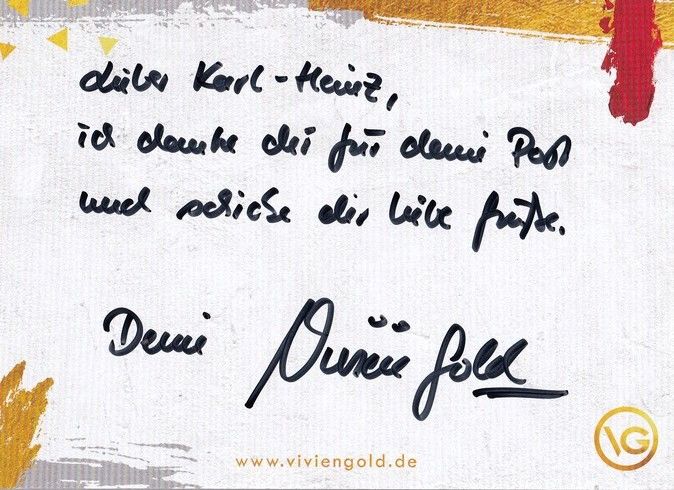 Lieber Karl-Heinz,
ich danke dir für deine Post
und schicke dir liebe Grüße.
Deine Vivien Gold
VG
www.viviengold.de